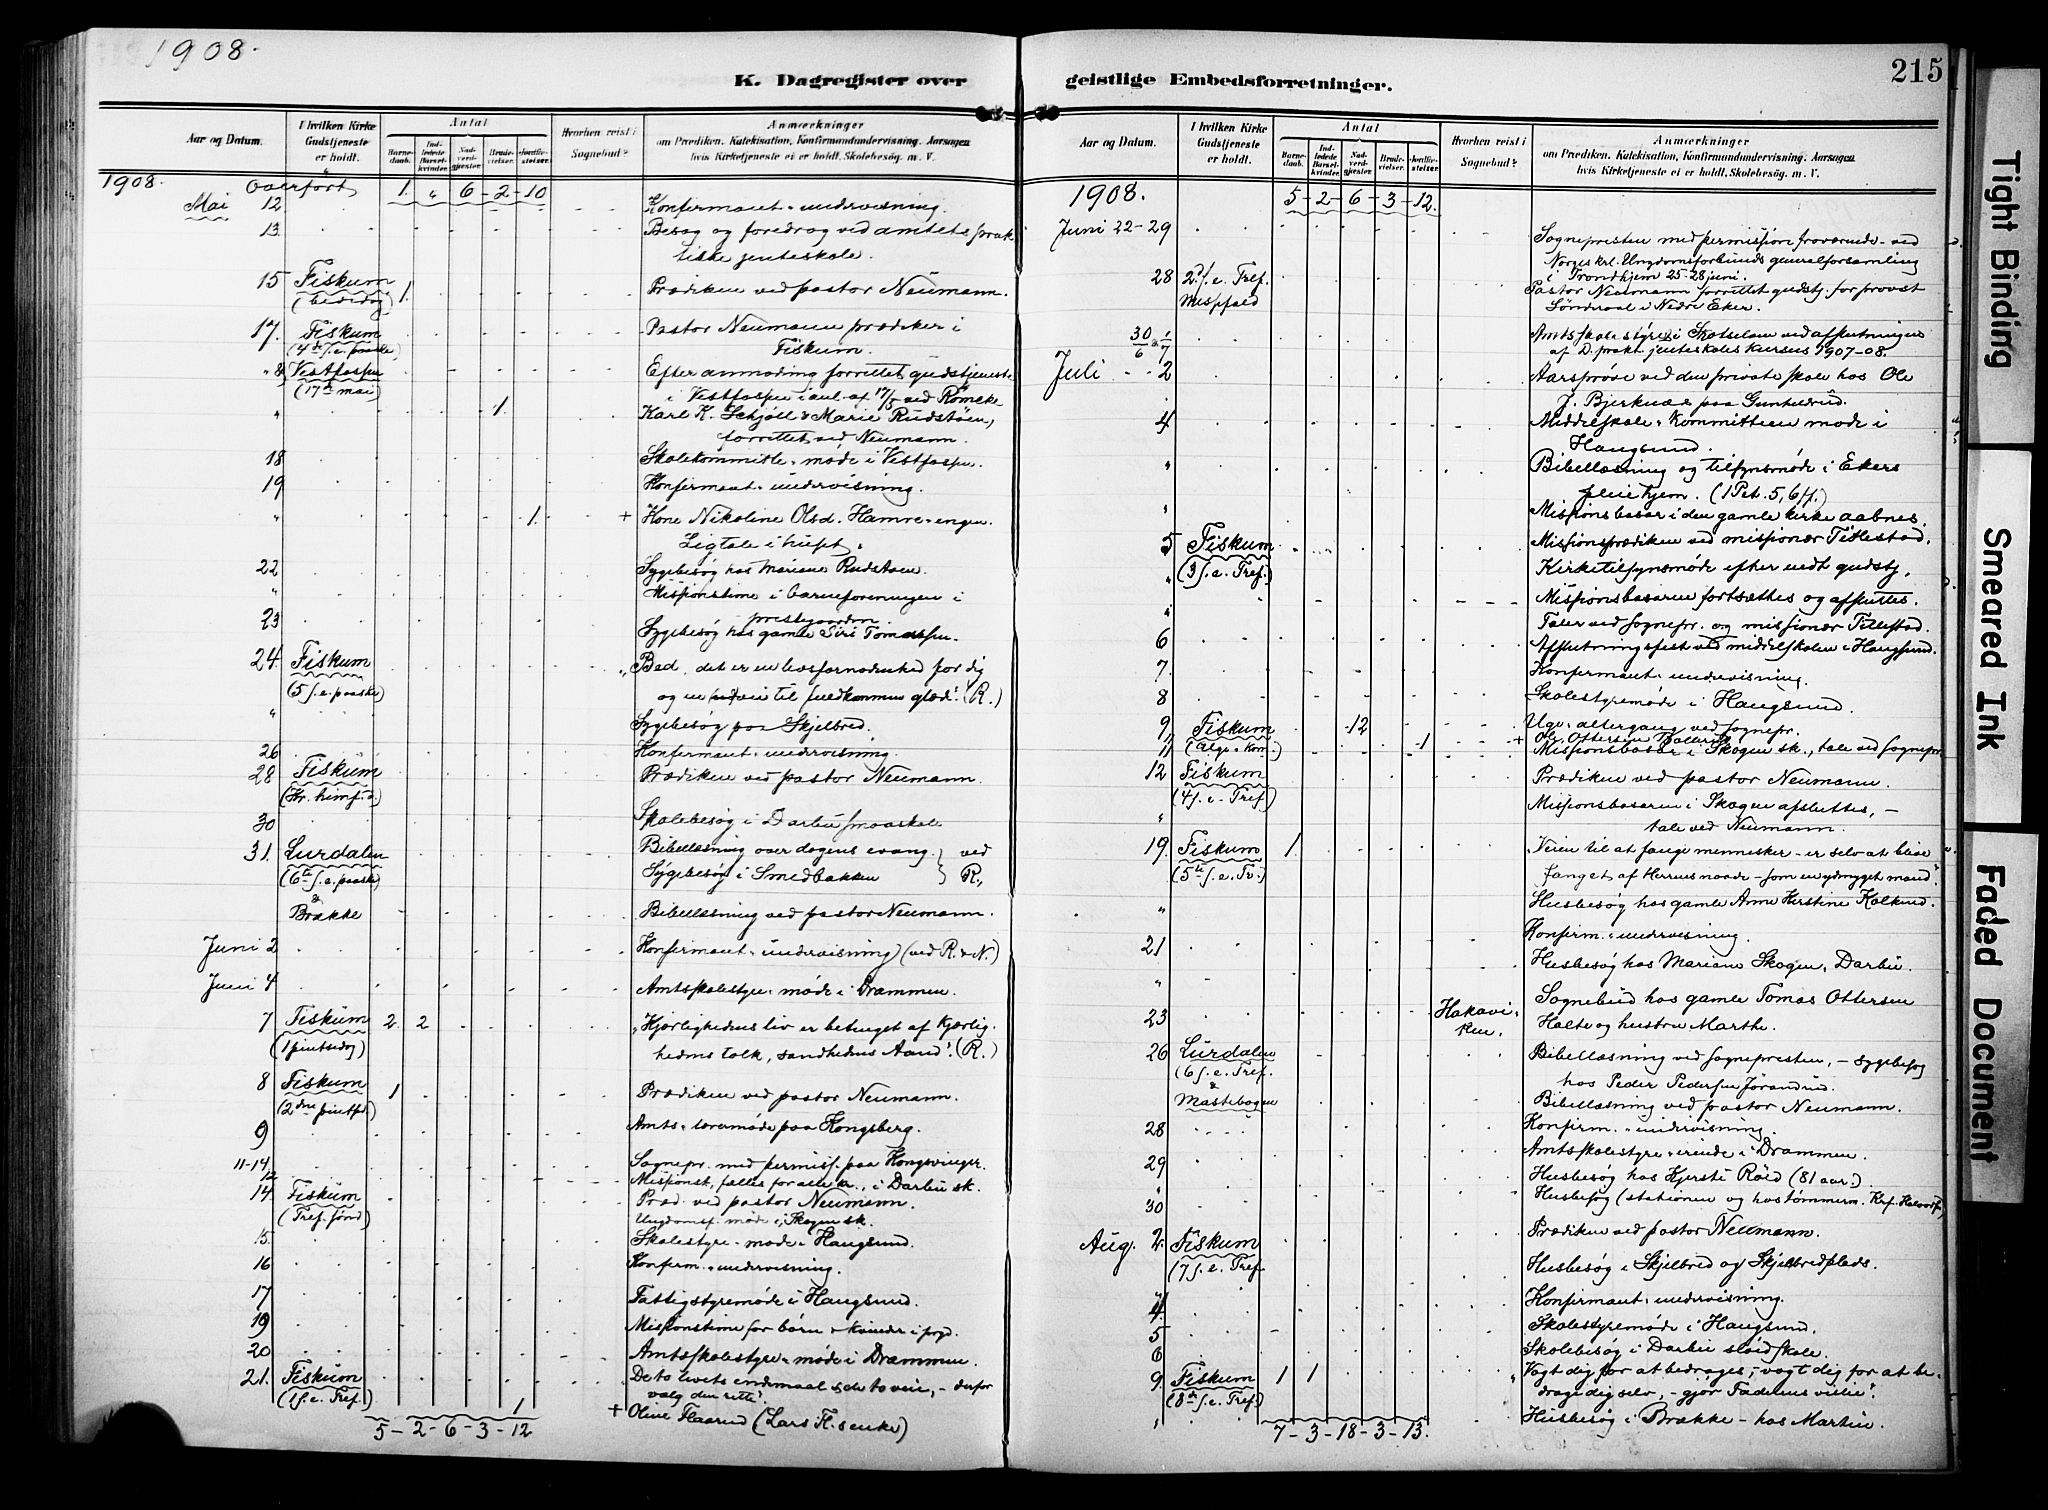 1908.
K. Dagregister over
Aar og Datum.
I hvilken Kirke Gudstjeneste er holdt.
Antal
Barnedaab.
Indledede Barselkvinder.
Nadverdgjester.
Brudevielser.
Jordfæstelser.
Hvorhen reist i Sognebud?
Anmærkninger
om Prædiken, Katekisation, Konfirmandundervisning, Aarsagen
hvis Kirketjeneste ei er holdt, Skolebesøg m. V.
1908. Overført 1. " 6 - 2 - 10
Mai 12 Konfirmant-undervisning.
13. Besøg og foredrag ved amtets prak-
tiske jenteskole.
15 Fiskum 1. Prædiken ved pastor Neumann.
(bededag)
17. Fiskum Pastor Neumann prædiker i
(4de s. e. paaske) Fiskum.
Vestfossen Efter anmodning forrettet gudstjeneste
(17de mai) i Vestfossen i anl. af 17/5 ved Römcke
" 1. Karl K. Schjøll & Marie Rudstøen,
forrettet ved Neumann.
18 Skolekommitte-møde i Vestfossen.
19 Konfirmant-undervisning.
" 1. + Kone Nikoline Olsd. Hamre-engen.
Ligtale i huset.
22 Sygebesøg hos Mariane Rudstøen.
" Missionstime i barneforeningen i
prestegaarden.
23 Sygebesøg hos gamle Siri Tomassen.
24. Fiskum "Bed, det er en livsfornødenhed for dig
(5 s. e. paaske) og en vei til fuldkommen glæde". (R.)
" Sygebesøg paa Skjelbred.
26 Konfirmant-undervisning.
28 Fiskum Prædiken ved pastor Neumann.
(Kr. himf. d.)
30 Skolebesøg i Darbu smaaskole
31. Lurdalen Bibellæsning over dagens evang. } ved
(6te s. e. paaske) Sygebesøg i Smedbakken } R.
& Brække Bibellæsning ved pastor Neumann.
Juni 2 Konfirmant-undervisning (ved R. & N.)
Juni 4 Amtsskolestyre-møde i Drammen.
7 Fiskum 2 2 "Kjærlighedens liv er betinget af kjærlig-
(1 pintsedag) hedens tolk, sandhedens Aand". (R.)
8 Fiskum 1 Prædiken ved pastor Neumann.
(2den pintsed.)
9 Amts-lærermøde paa Kongsberg.
11-14. Sognepr. med permiss. paa Kongsvinger.
12 Missionst. fælles for alle kr., i Darbu sk.
14. Fiskum Præd. ved pastor Neumann.
(Tref. sønd) Ungdomsf. møde i Skogen sk.
15. Skolestyre-møde i Haugsund.
16 Konfirm.-undervisning.
17 Fattigstyremøde i Haugsund.
19 Missionstime for børn & kvinder i prgd.
20 Amtsskolestyre-møde i Drammen.
21. Fiskum De to livets endemaal & de to veie, - derfor
(1 s. e. Tref.) vælg den rette!
1 + Oline Flaarud (Lars Fl.s enke)
5 - 2 - 6 - 3 - 12
geistlige Embedsforretninger.
215
Aar og Datum.
I hvilken Kirke Gudstjeneste er holdt.
Antal
Barnedaab.
Indledede Barselkvinder.
Nadverdgjester.
Brudevielser.
Jordfæstelser.
Hvorhen reist i Sognebud?
Anmærkninger
om Prædiken, Katekisation, Konfirmandundervisning, Aarsagen
hvis Kirketjeneste ei er holdt, Skolebesøg m. V.
1908. 5 - 2 - 6 - 3 - 12.
Juni 22-29 Sognepresten med permission fraværende - ved
Norges krl. Ungdomsforbunds generalforsamling
i Trondhjem 25-28 juni.
28 2 s. e. Tref. Pastor Neumann forrettet gudstj. for provst
Messfald Søndraal i Nedre Eker.
30/6 & 1/7 Amtsskolestyre i Skotselven ved afslutningen
af D. prakt. jenteskoles kursus 1907-08.
Juli 2 Aarsprøve ved den private skole hos Ole
J. Bjerknæs paa Gunhildrud.
4 Middelskole-kommitteen møde i
Haugsund.
" Bibellæsning og tilsynsmøde i Ekers
pleiehjem. (1 Pet. 5, 6 ff.)
" Missionsbasar i den gamle kirke aabnes.
5 Fiskum Missionsprædiken ved missionær Titlestad.
" (3 s. e. Tref.) Kirketilsynsmøde efter endt gudstj.
" Missionsbasaren fortsættes og afsluttes.
Taler ved sognepr. og missionær Titlestad.
6 Afslutningsfest ved middelskolen i Haugsund.
7. Konfirmant-undervisning.
8 Skolestyremøde i Haugsund.
9 Fiskum 12 Uge-altergang ved sognepr.
1 + Ole Ottersen
11 Missionsbasar i Skogen sk., tale ved sognepr.
12 Fiskum Prædiken ved pastor Neumann.
(4 s. e. Tref)
" Missionsbasaren i Skogen afsluttes, -
tale ved Neumann.
19. Fiskum 1. "Veien til at fange mennesker - er selv at blive
(5te s. e. Tr.) fanget af Herrens naade - som en ydmyget mand".
" Husbesøg hos gamle Anne Kirstine Kolkind.
21 Konfirm.-undervisning.
" Husbesøg hos Mariane Skogen, Darbu.
23 Hakavi-
ken. Sognebud hos gamle Tomas Ottersen
Holte og hustru Marthe.
26 Lurdalen Bibellæsning ved sognepresten, - sygebesøg
(6 s. e. Tref. hos Peder Pedersen Jørandrud.
& Mastebogen Bibellæsning ved pastor Neumann.
28 Konfirm.-undervisning.
29 Amtsskolestyre-ærinde i Drammen.
" Husbesøg hos Kjersti Røid (81 aar.)
30 Husbesøg (stationen og hos tømmerm. Krf. Halvorss.)
Aug. 2. Fiskum Prædiken ved pastor Neumann.
(7 s. e. Tref. Husbesøg i Skjelbred og Skjelbredplads.
4. Konfirmant-undervisning.
5 Skolestyremøde i Haugsund.
6 Skolebesøg i Darbu sløidskole.
9. Fiskum 1 1 "Vogt dig for at bedrages, - vogt dig for at be-
(8de s. e. Tref.) drage dig selv, - gjør Faderens vilje".
" Husbesøg i Brække - hos Martin.
7 - 3 - 18 - 3 - 13.
Tight Binding
Smeared Ink
Faded Document